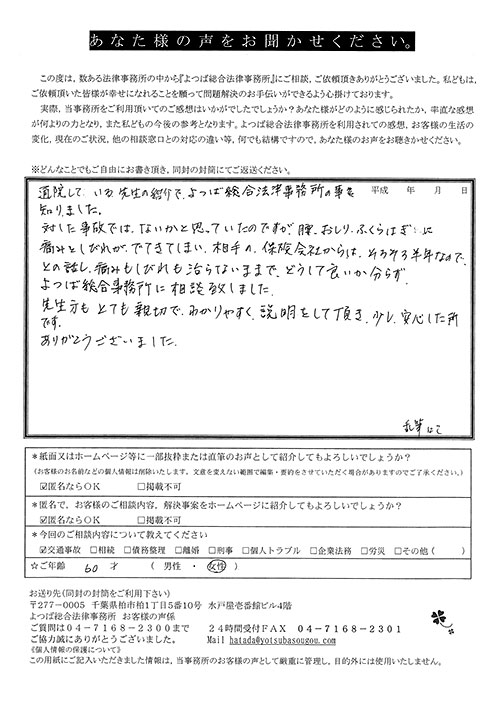 あなた様の声をお聞かせください。
この度は、数ある法律事務所の中から『よつば総合法律事務所』にご相談、ご依頼頂きありがとうございました。私どもは、
ご依頼頂いた皆様が幸せになれることを願って問題解決のお手伝いができるよう心掛けております。
実際、当事務所をご利用頂いてのご感想はいかがでしたでしょうか？あなた様がどのように感じられたか、率直な感想
が何よりの力となり、また私どもの今後の参考となります。よつば総合法律事務所を利用されての感想、お客様の生活の
変化、現在のご状況、他の相談窓口との対応の違い等、何でも結構ですので、あなた様のお声をお聴きかせください。
※どんなことでもご自由にお書き頂き、同封の封筒にてご返送ください。
平成　年　月　日
通院している先生の紹介で、よつば総合法律事務所の事を
知りました。
対した事故では、ないかと思っていたのですが、腰、おしり、ふくらはぎに
痛みとしびれが、でてきてしまい、相手の、保険会社からは、そろそろ半年なので、
との話し、痛みもしびれも治らないままで、どうして良いか分らず、
よつば総合事務所に相談致しました。
先生方も とても親切で、わかりやすく、説明をして頂き、少し、安心した所
です。
ありがとうございました。
乱筆にて
＊紙面又はホームページ等に一部抜粋または直筆のお声として紹介してもよろしいでしょうか？
（お客様のお名前などの個人情報は削除いたします。文意を変えない範囲で編集・要約をさせていただく場合がありますのでご了承ください。）
☑匿名ならＯＫ　□掲載不可
＊匿名で、お客様のご相談内容、解決事案をホームページに紹介してもよろしいでしょうか？
☑匿名ならＯＫ　□掲載不可
＊今回のご相談内容について教えてください
☑交通事故　□相続　□債務整理　□離婚　□刑事　□個人トラブル　□企業法務　□労災　□その他（　）
☆ご年齢　60　才　（　男性　・　女性　）
お送り先（同封の封筒をご利用下さい）
〒277-0005　千葉県柏市柏1丁目5番10号　水戸屋壱番館ビル4階
よつば総合法律事務所　お客様の声係
ご質問は04-7168-2300まで　24時間受付FAX　04-7168-2301
ご協力誠にありがとうございました。　Mail hatada@yotsubasougou.com
《個人情報の保護について》
この用紙にご記入いただきました情報は、当事務所のお客様の声として厳重に管理し、目的外には使用いたしません。